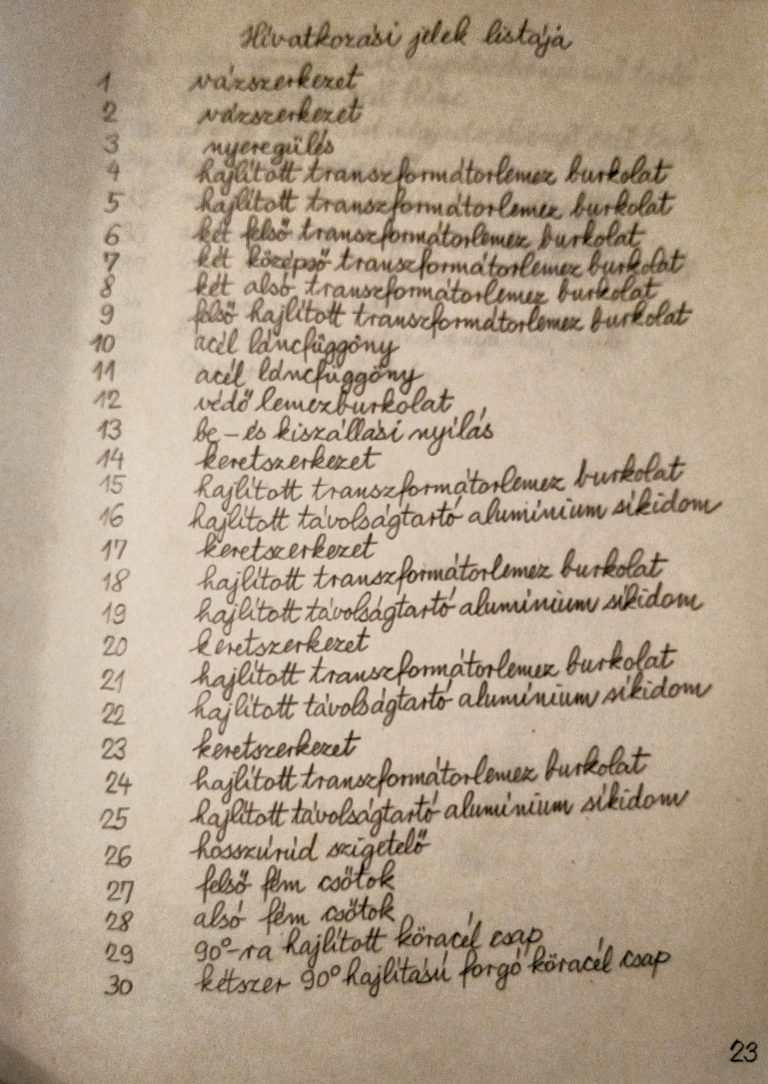 Hivatkozási jelek listája
1 vázszerkezet
2 vázszerkezet
3 nyeregülés
4 hajlított transzformátorlemez burkolat
5 hajlított transzformátorlemez burkolat
6 két felső transzformátorlemez burkolat
7 két középső transzformátorlemez burkolat
8 két alsó transzformátorlemez burkolat
9 felső hajlított transzformátorlemez burkolat
10 acél láncfüggöny
11 acél láncfüggöny
12 védő lemezburkolat
13 be-és kiszállási nyílás
14 keretszerkezet
15 hajlított transzformátorlemez burkolat
16 hajlított távolságtartó alumínium síkidom
17 keretszerkezet
18 hajlított transzformátorlemez burkolat
19 hajlított távolságtartó alumínium síkidom
20 keretszerkezet
21 hajlított transzformátorlemez burkolat
22 hajlított távolságtartó alumínium síkidom
23 keretszerkezet
24 hajlított transzformátorlemez burkolat
25 hajlított távolságtartó alumínium síkidom
26 hosszúrúd szigetelő
27 felső fém csőtok
28 alsó fém csőtok
29 90°-ra hajlított köracél csap
30 kétszer 90° hajlítású forgó köracél csap
23